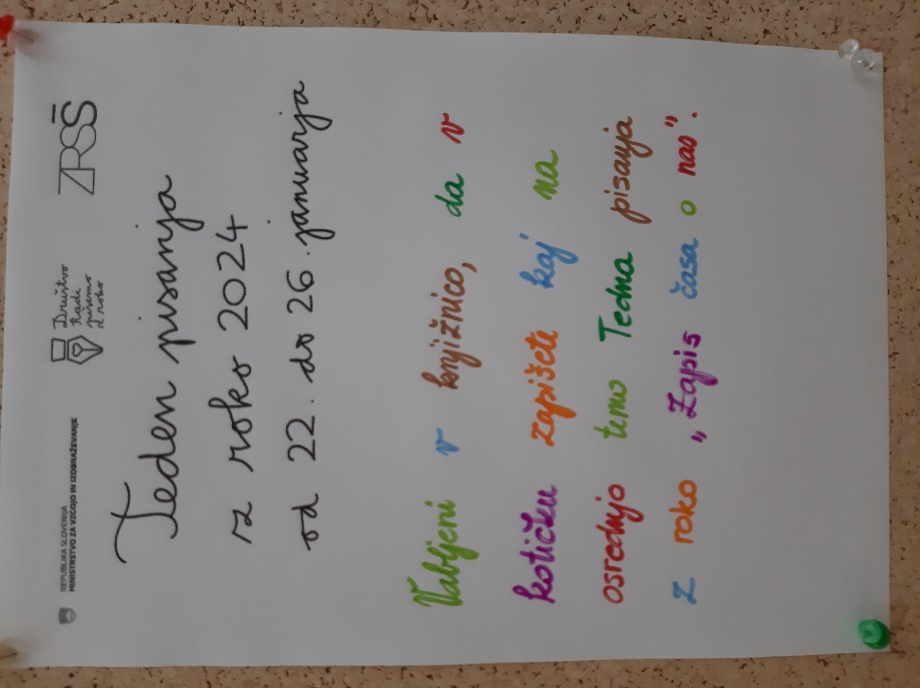 REPUBLIKA SLOVENIJA
MINISTRSTVO ZA VZGOJO IN IZOBRAŽEVANJE
Društvo
Radi
pišemo
z roko
ZRSŠ
Teden pisanja
z roko 2024
od 22. do 26. januarja
Vabljeni v knjižnico, da v
kotičku zapišete kaj na
osrednjo temo Tedna pisanja
z roko „Zapis časa o nas".